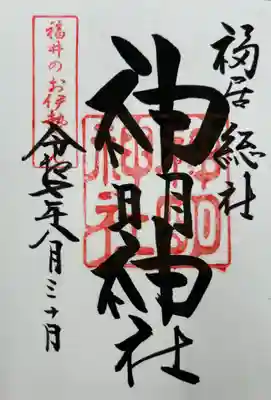 福居総社
神明神社
神明神社
福井のお伊勢
令和 年八月三十日